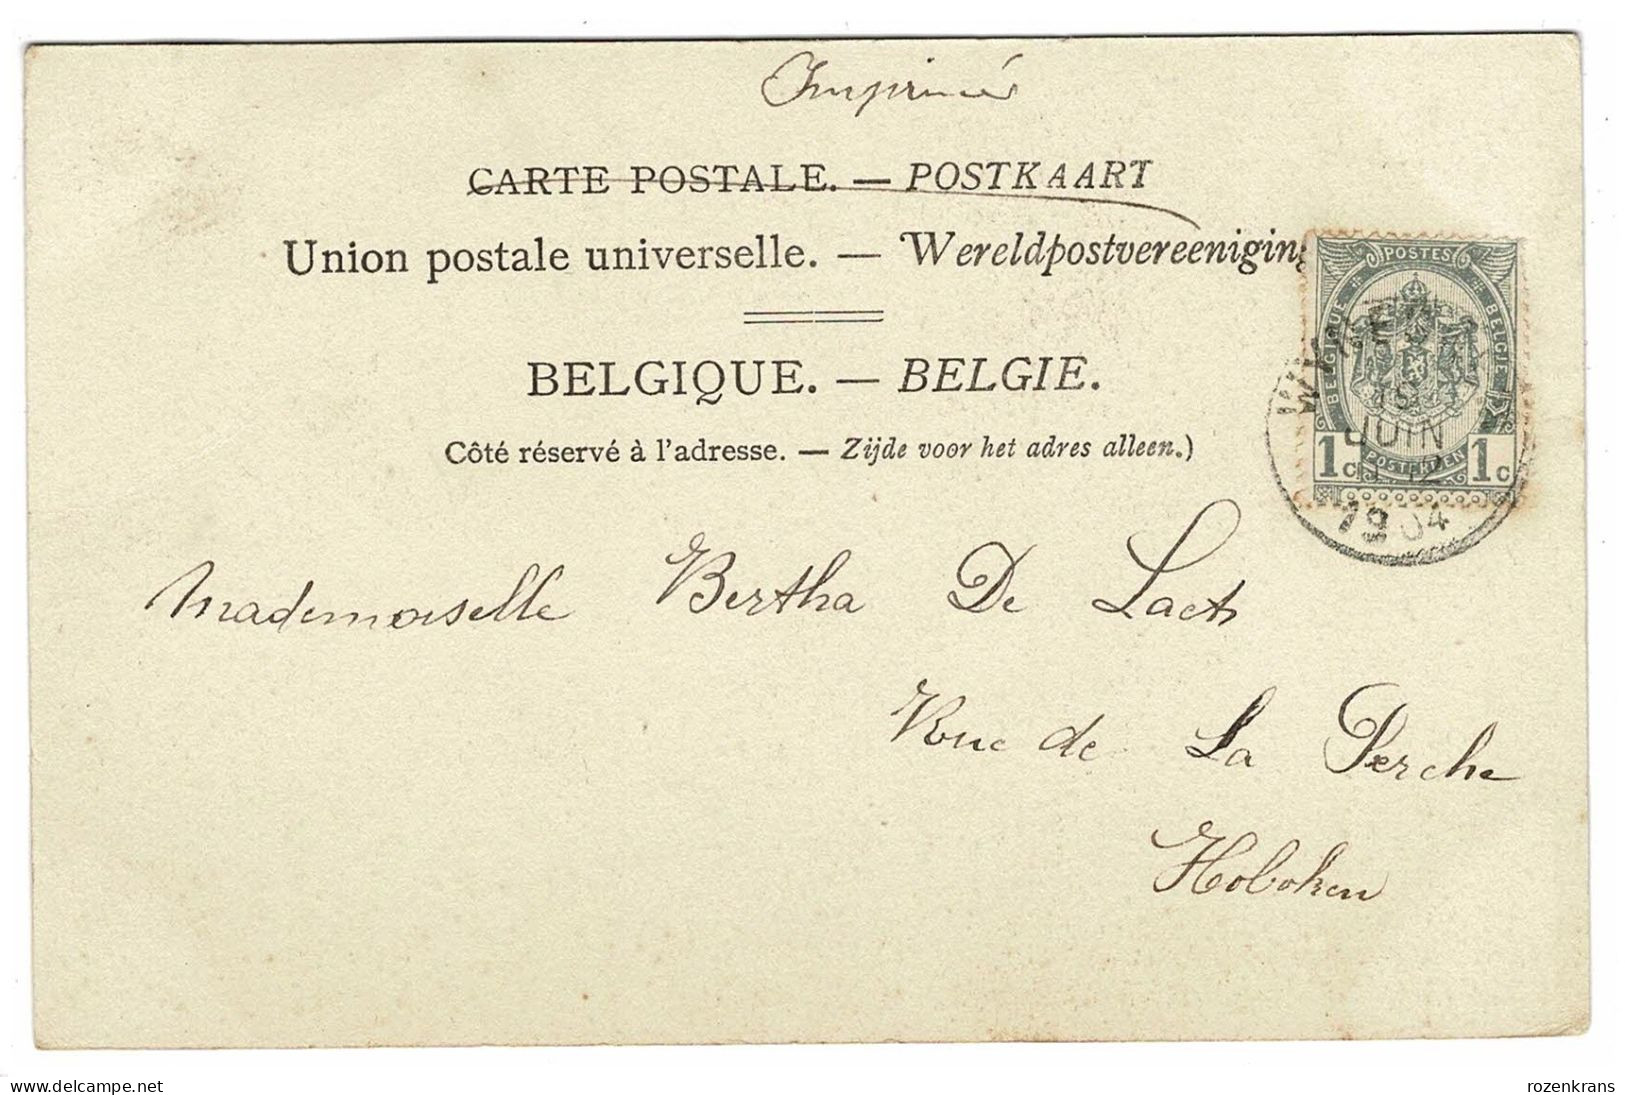 Imprimés
CARTE POSTALE. — POSTKAART
Union postale universelle. — Wereldpostvereeniging
POSTES
BELGIQUE
BELGIE
1c
1c
POSTERIJEN
JUIN
1904
BELGIQUE. — BELGIE.
Côté réservé à l'adresse. — Zijde voor het adres alleen.)
Mademoiselle Bertha De Laet
Rue de La Perche
Hoboken
delcampe.net
rozenkrans